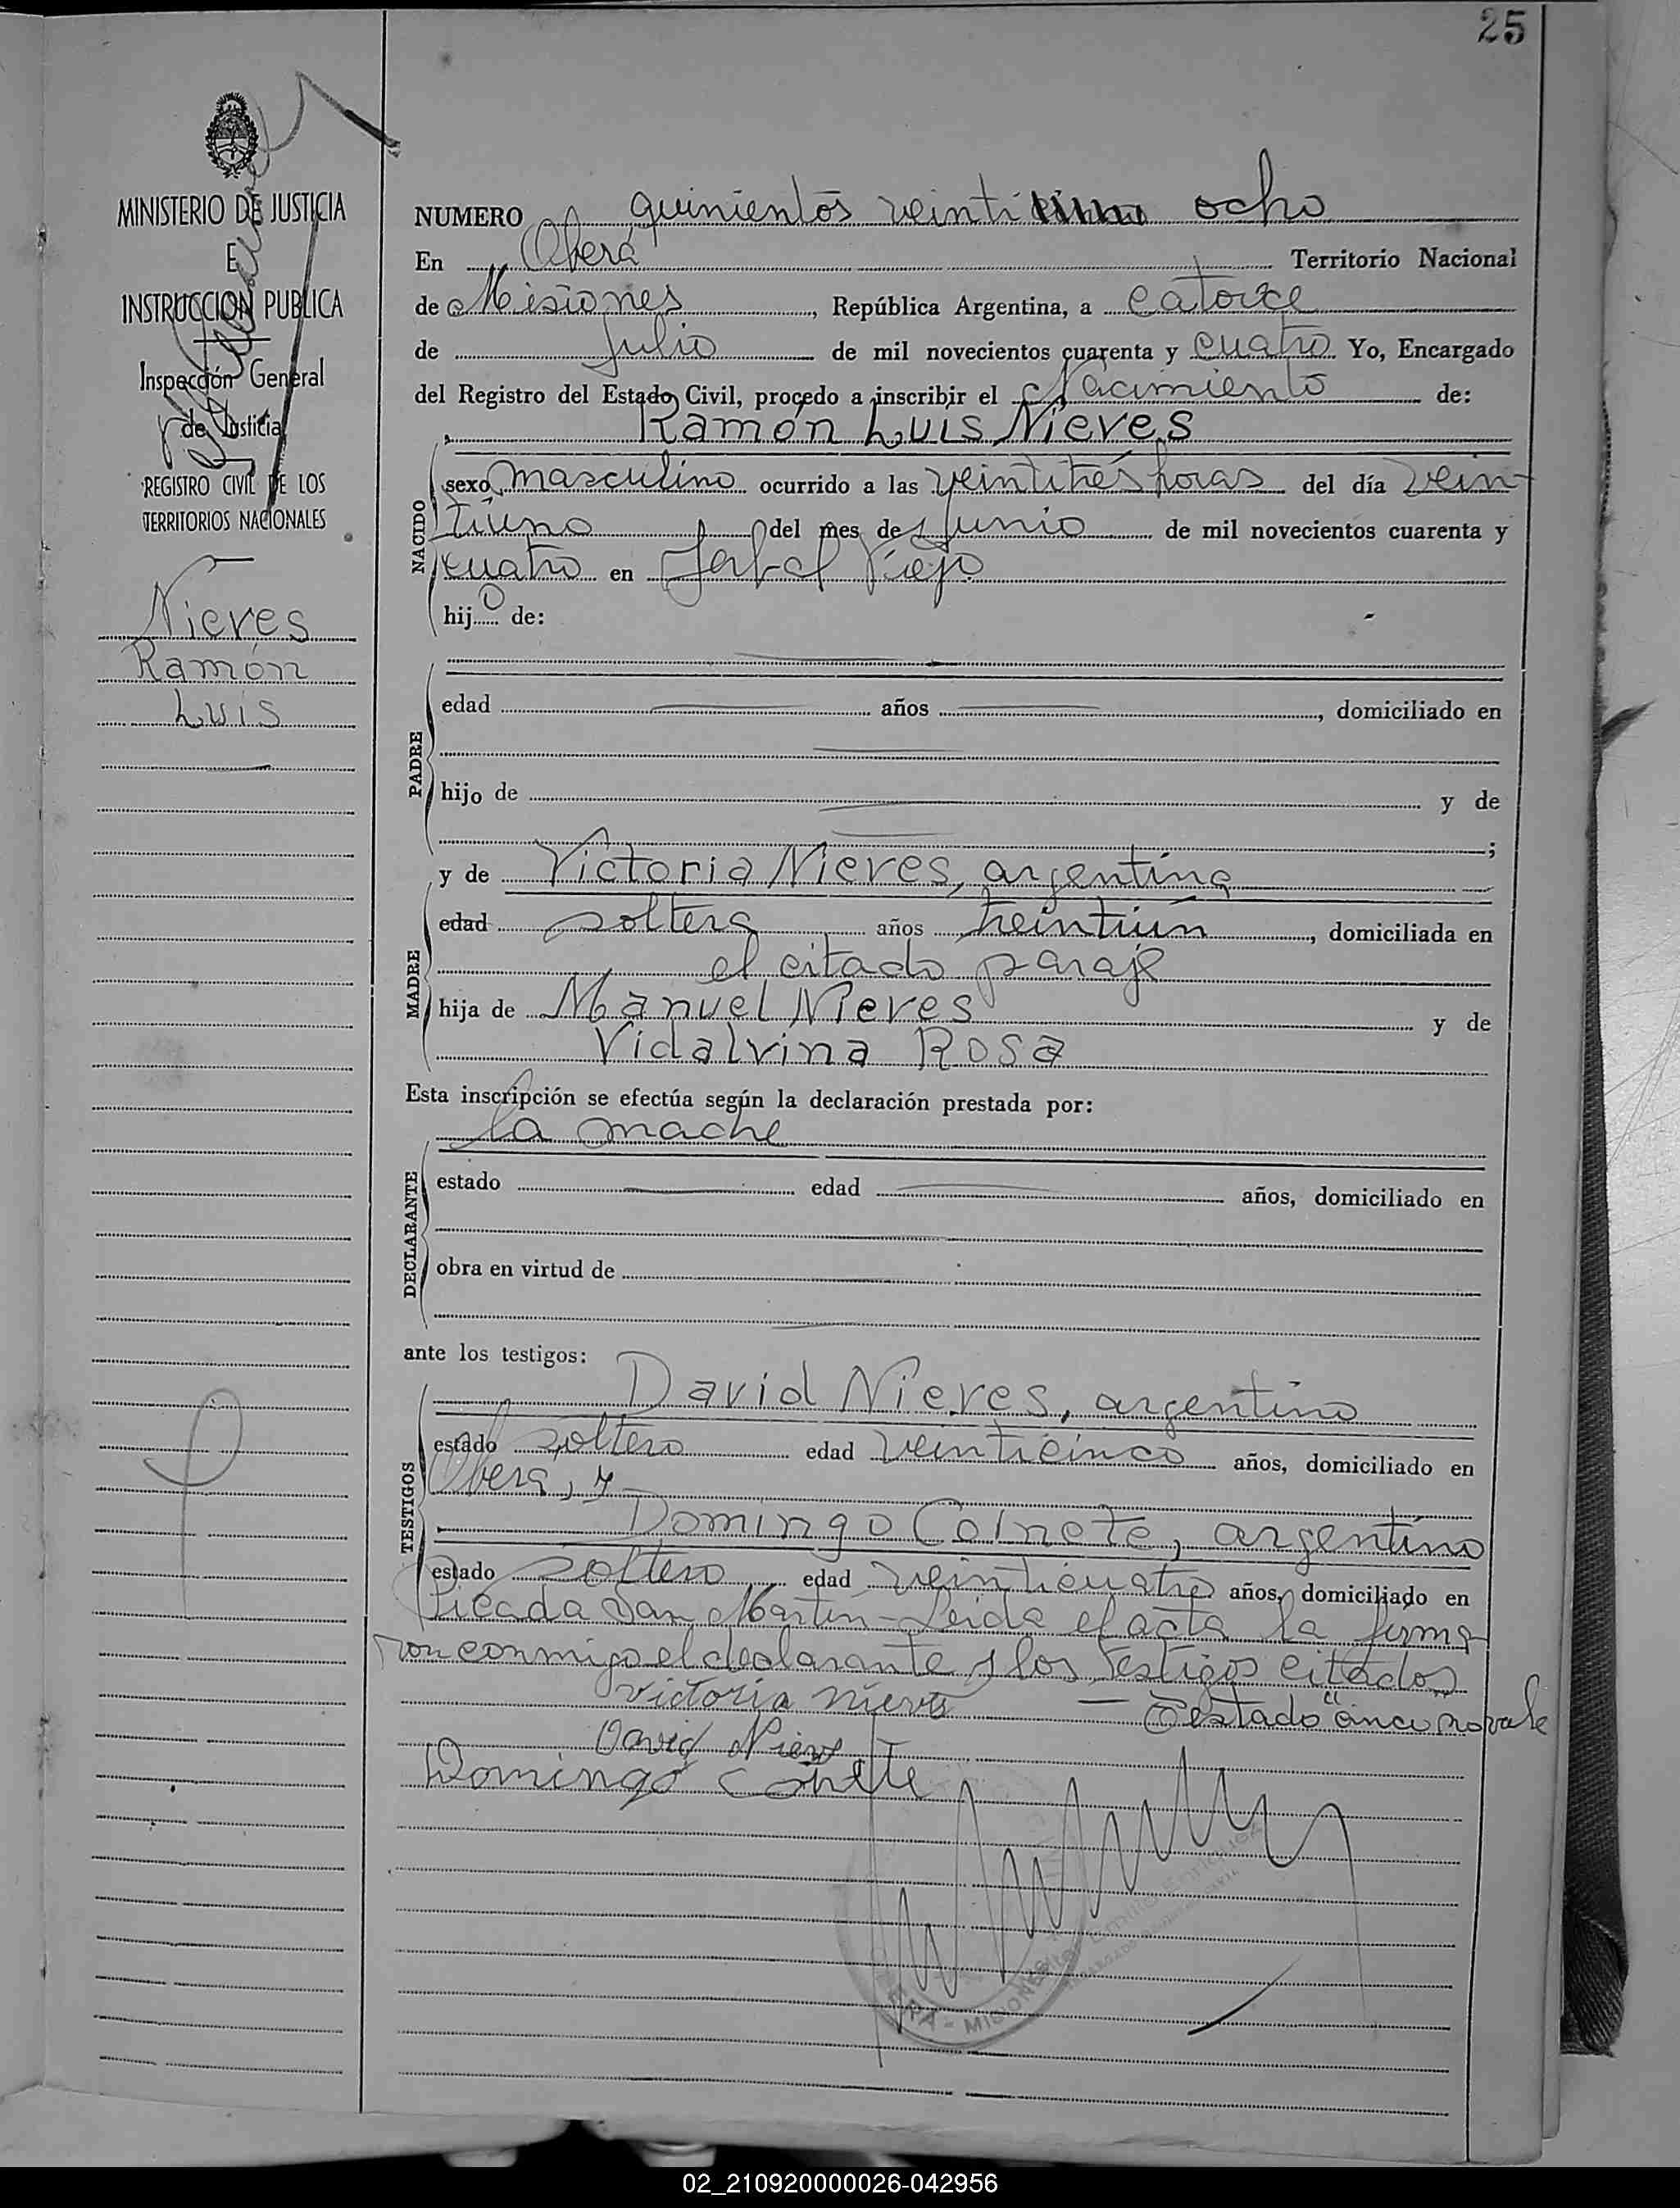 25
MINISTERIO DE JUSTICIA
E
INSTRUCCION PUBLICA
Inspección General
de Justicia
REGISTRO CIVIL DE LOS
TERRITORIOS NACIONALES
Nieves
Ramón
Luis
NUMERO quinientos veinti ocho
En Oberá Territorio Nacional
de Misiones, República Argentina, a catorce
de Julio de mil novecientos cuarenta y cuatro Yo, Encargado
del Registro del Estado Civil, procedo a inscribir el Nacimiento de:
Ramón Luis Nieves
NACIDO
sexo masculino ocurrido a las veintitrés horas del día vein
tiuno del mes de Junio de mil novecientos cuarenta y
cuatro en Viejo
hijo de:
PADRE
edad años , domiciliado en
hijo de y de
;
y de Victoria Nieves, argentina
MADRE
edad soltera años treintiún, domiciliada en
el citado paraje
hija de Manuel Nieves y de
Vidalvina Rosa
Esta inscripción se efectúa según la declaración prestada por:
la madre
DECLARANTE
estado edad años, domiciliado en
obra en virtud de
ante los testigos:
TESTIGOS
David Nieves, argentino
estado soltero edad veinticinco años, domiciliado en
Oberá, y
Domingo Colnete, argentino
estado soltero edad veinticuatro años, domiciliado en
Picada San Martín - Leída el acta la firma
ron conmigo el declarante y los testigos citados
Victoria nieves - Testado "cinco" no vale
David Nieves
Domingo
OBERA - MISIONES
02_210920000026-042956